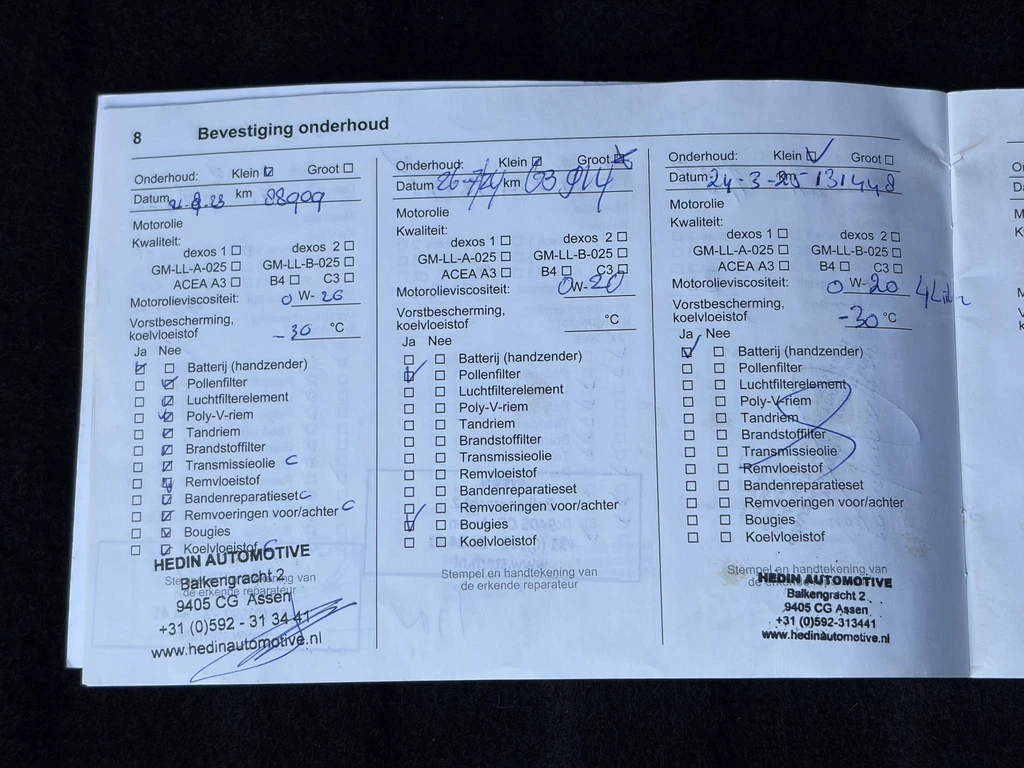 8 Bevestiging onderhoud
Onderhoud: Klein Groot
Datum km 88909
Motorolie
Kwaliteit:
dexos 1 dexos 2
GM-LL-A-025 GM-LL-B-025
ACEA A3 B4 C3
Motorolieviscositeit: 0 W- 20
Vorstbescherming,
koelvloeistof - 30 °C
Ja Nee
Batterij (handzender)
Pollenfilter
Luchtfilterelement
Poly-V-riem
Tandriem
Brandstoffilter
Transmissieolie C
Remvloeistof
Bandenreparatieset C
Remvoeringen voor/achter C
Bougies
Koelvloeistof C
Stempel en handtekening van
de erkende reparateur
HEDIN AUTOMOTIVE
Balkengracht 2
9405 CG Assen
+31 (0)592 - 31 34 41
www.hedinautomotive.nl
Onderhoud: Klein Groot
Datum 26-7-24 km
Motorolie
Kwaliteit:
dexos 1 dexos 2
GM-LL-A-025 GM-LL-B-025
ACEA A3 B4 C3
Motorolieviscositeit: 0W-20
Vorstbescherming,
koelvloeistof °C
Ja Nee
Batterij (handzender)
Pollenfilter
Luchtfilterelement
Poly-V-riem
Tandriem
Brandstoffilter
Transmissieolie
Remvloeistof
Bandenreparatieset
Remvoeringen voor/achter
Bougies
Koelvloeistof
Stempel en handtekening van
de erkende reparateur
Onderhoud: Klein Groot
Datum 24-3-25 km 131448
Motorolie
Kwaliteit:
dexos 1 dexos 2
GM-LL-A-025 GM-LL-B-025
ACEA A3 B4 C3
Motorolieviscositeit: 0 W-20 4 Liter
Vorstbescherming,
koelvloeistof -30 °C
Ja Nee
Batterij (handzender)
Pollenfilter
Luchtfilterelement
Poly-V-riem
Tandriem
Brandstoffilter
Transmissieolie
Remvloeistof
Bandenreparatieset
Remvoeringen voor/achter
Bougies
Koelvloeistof
Stempel en handtekening van
de erkende
HEDIN AUTOMOTIVE
Balkengracht 2
9405 CG Assen
+31 (0)592-313441
www.hedinautomotive.nl